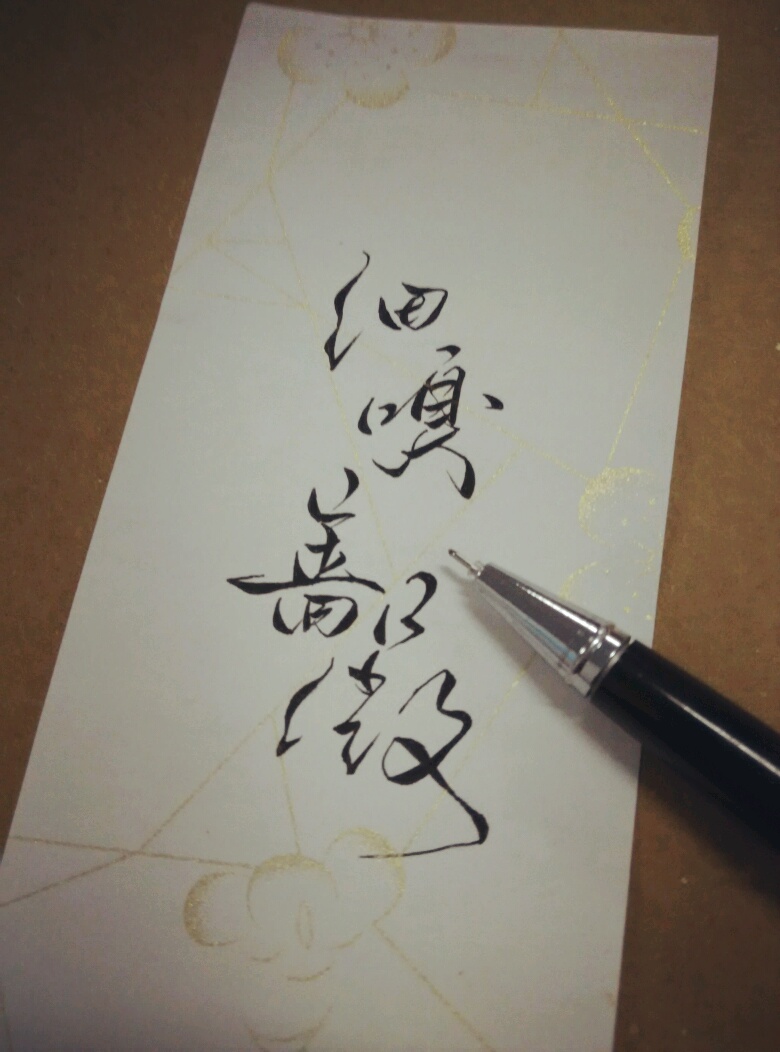 细嗅蔷薇